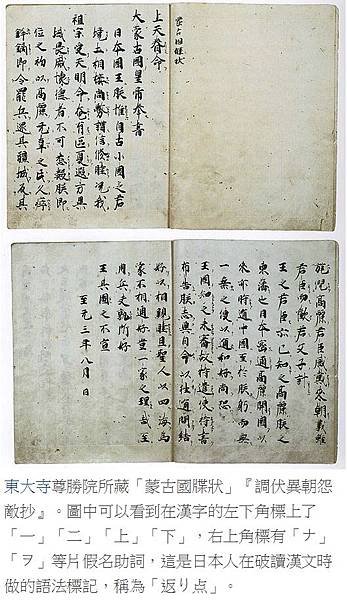 蒙古国牒状
上天眷命
大蒙古國皇帝奉書
日本國王朕惟自古小國之君
境土相接尚務講信修睦況我
祖宗受天明命奄有區夏遐方異
域畏威懷德者不可悉數朕即
位之初以高麗无辜之民久瘁
鋒鏑即令罷兵還其疆域反其
旄倪高麗君臣感戴來朝義雖
君臣而歡若父子計
王之君臣亦已知之高麗朕之
東藩也日本密邇高麗開國以
來亦時通中國至於朕躬而無
一乘之使以通和好尚恐
王國知之未審故特遣使持書
布告朕志冀自今以往通問結
好以相親睦且聖人以四海為
家不相通好豈一家之理哉至
用兵夫孰所好
王其圖之不宣
至元三年八月 日
東大寺尊勝院所藏「蒙古國牒狀」『調伏異朝怨
敵抄』。圖中可以看到在漢字的左下角標上了
「一」「二」「上」「下」，右上角標有「ナ」
「ヲ」等片假名助詞，這是日本人在破讀漢文時
做的語法標記，稱為「返り点」。